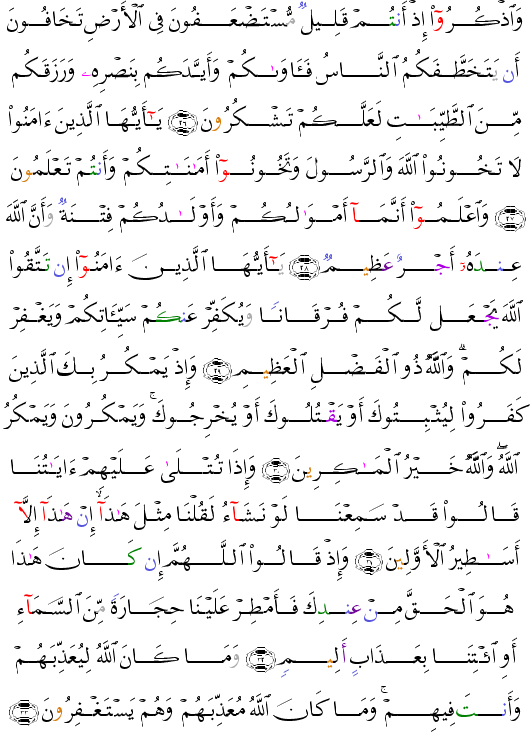 وَٱذۡكُرُوٓاْ إِذۡ أَنتُمۡ قَلِيلٞ مُّسۡتَضۡعَفُونَ فِي ٱلۡأَرۡضِ تَخَافُونَ
أَن يَتَخَطَّفَكُمُ ٱلنَّاسُ فَـَٔاوَىٰكُمۡ وَأَيَّدَكُم بِنَصۡرِهِۦ وَرَزَقَكُم
مِّنَ ٱلطَّيِّبَٰتِ لَعَلَّكُمۡ تَشۡكُرُونَ ٢٦ يَٰٓأَيُّهَا ٱلَّذِينَ ءَامَنُواْ
لَا تَخُونُواْ ٱللَّهَ وَٱلرَّسُولَ وَتَخُونُوٓاْ أَمَٰنَٰتِكُمۡ وَأَنتُمۡ تَعۡلَمُونَ
٢٧ وَٱعۡلَمُوٓاْ أَنَّمَآ أَمۡوَٰلُكُمۡ وَأَوۡلَٰدُكُمۡ فِتۡنَةٞ وَأَنَّ ٱللَّهَ
عِندَهُۥٓ أَجۡرٌ عَظِيمٞ ٢٨ يَٰٓأَيُّهَا ٱلَّذِينَ ءَامَنُوٓاْ إِن تَتَّقُواْ
ٱللَّهَ يَجۡعَل لَّكُمۡ فُرۡقَانٗا وَيُكَفِّرۡ عَنكُمۡ سَيِّـَٔاتِكُمۡ وَيَغۡفِرۡ
لَكُمۡۗ وَٱللَّهُ ذُو ٱلۡفَضۡلِ ٱلۡعَظِيمِ ٢٩ وَإِذۡ يَمۡكُرُ بِكَ ٱلَّذِينَ
كَفَرُواْ لِيُثۡبِتُوكَ أَوۡ يَقۡتُلُوكَ أَوۡ يُخۡرِجُوكَۚ وَيَمۡكُرُونَ وَيَمۡكُرُ
ٱللَّهُۖ وَٱللَّهُ خَيۡرُ ٱلۡمَٰكِرِينَ ٣٠ وَإِذَا تُتۡلَىٰ عَلَيۡهِمۡ ءَايَٰتُنَا
قَالُواْ قَدۡ سَمِعۡنَا لَوۡ نَشَآءُ لَقُلۡنَا مِثۡلَ هَٰذَآ إِنۡ هَٰذَآ إِلَّآ
أَسَٰطِيرُ ٱلۡأَوَّلِينَ ٣١ وَإِذۡ قَالُواْ ٱللَّهُمَّ إِن كَانَ هَٰذَا
هُوَ ٱلۡحَقَّ مِنۡ عِندِكَ فَأَمۡطِرۡ عَلَيۡنَا حِجَارَةٗ مِّنَ ٱلسَّمَآءِ
أَوِ ٱئۡتِنَا بِعَذَابٍ أَلِيمٖ ٣٢ وَمَا كَانَ ٱللَّهُ لِيُعَذِّبَهُمۡ
وَأَنتَ فِيهِمۡۚ وَمَا كَانَ ٱللَّهُ مُعَذِّبَهُمۡ وَهُمۡ يَسۡتَغۡفِرُونَ ٣٣